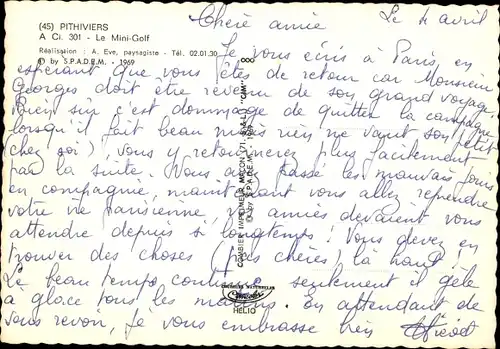 (45) PITHIVIERS
A Ci. 301 - Le Mini-Golf
Réalisation : A. Eve, paysagiste - Tél. 02.01.30
© by S.P.A.D.E.M. - 1969
Chère amie Le 4 avril
Je vous écris à Paris en
espérant que vous êtes de retour car Monsieur
Georges doit être revenu de son grand voyage.
Bien sûr c'est dommage de quitter la campagne
lorsqu'il fait beau mais rien ne vaut son (petit
chez soi), vous y retournerez plus facilement
par la suite. Vous avez passé les mauvais jours
en compagnie, maintenant vous allez reprendre
votre vie parisienne, vos amies devaient vous
attendre depuis si longtemps. Vous devez en
trouver des choses (très chères) là haut !
Le beau temps continue seulement il gèle
à glace tous les matins. En attendant de
vous revoir, je vous embrasse bien
COMBIER IMPRIMEUR MACON (71, S.-&-L.) "CIM"
© by S.P.A.D.E.M.
COULEURS NATURELLES
Combier
HELIO